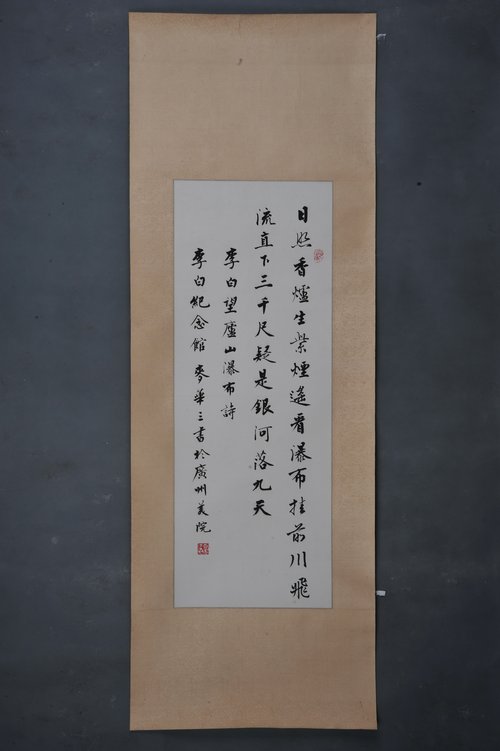 日照香爐生紫煙遙看瀑布挂前川飛
流直下三千尺疑是銀河落九天
李白望廬山瀑布詩
李白紀念館 麥華三書於廣州美院